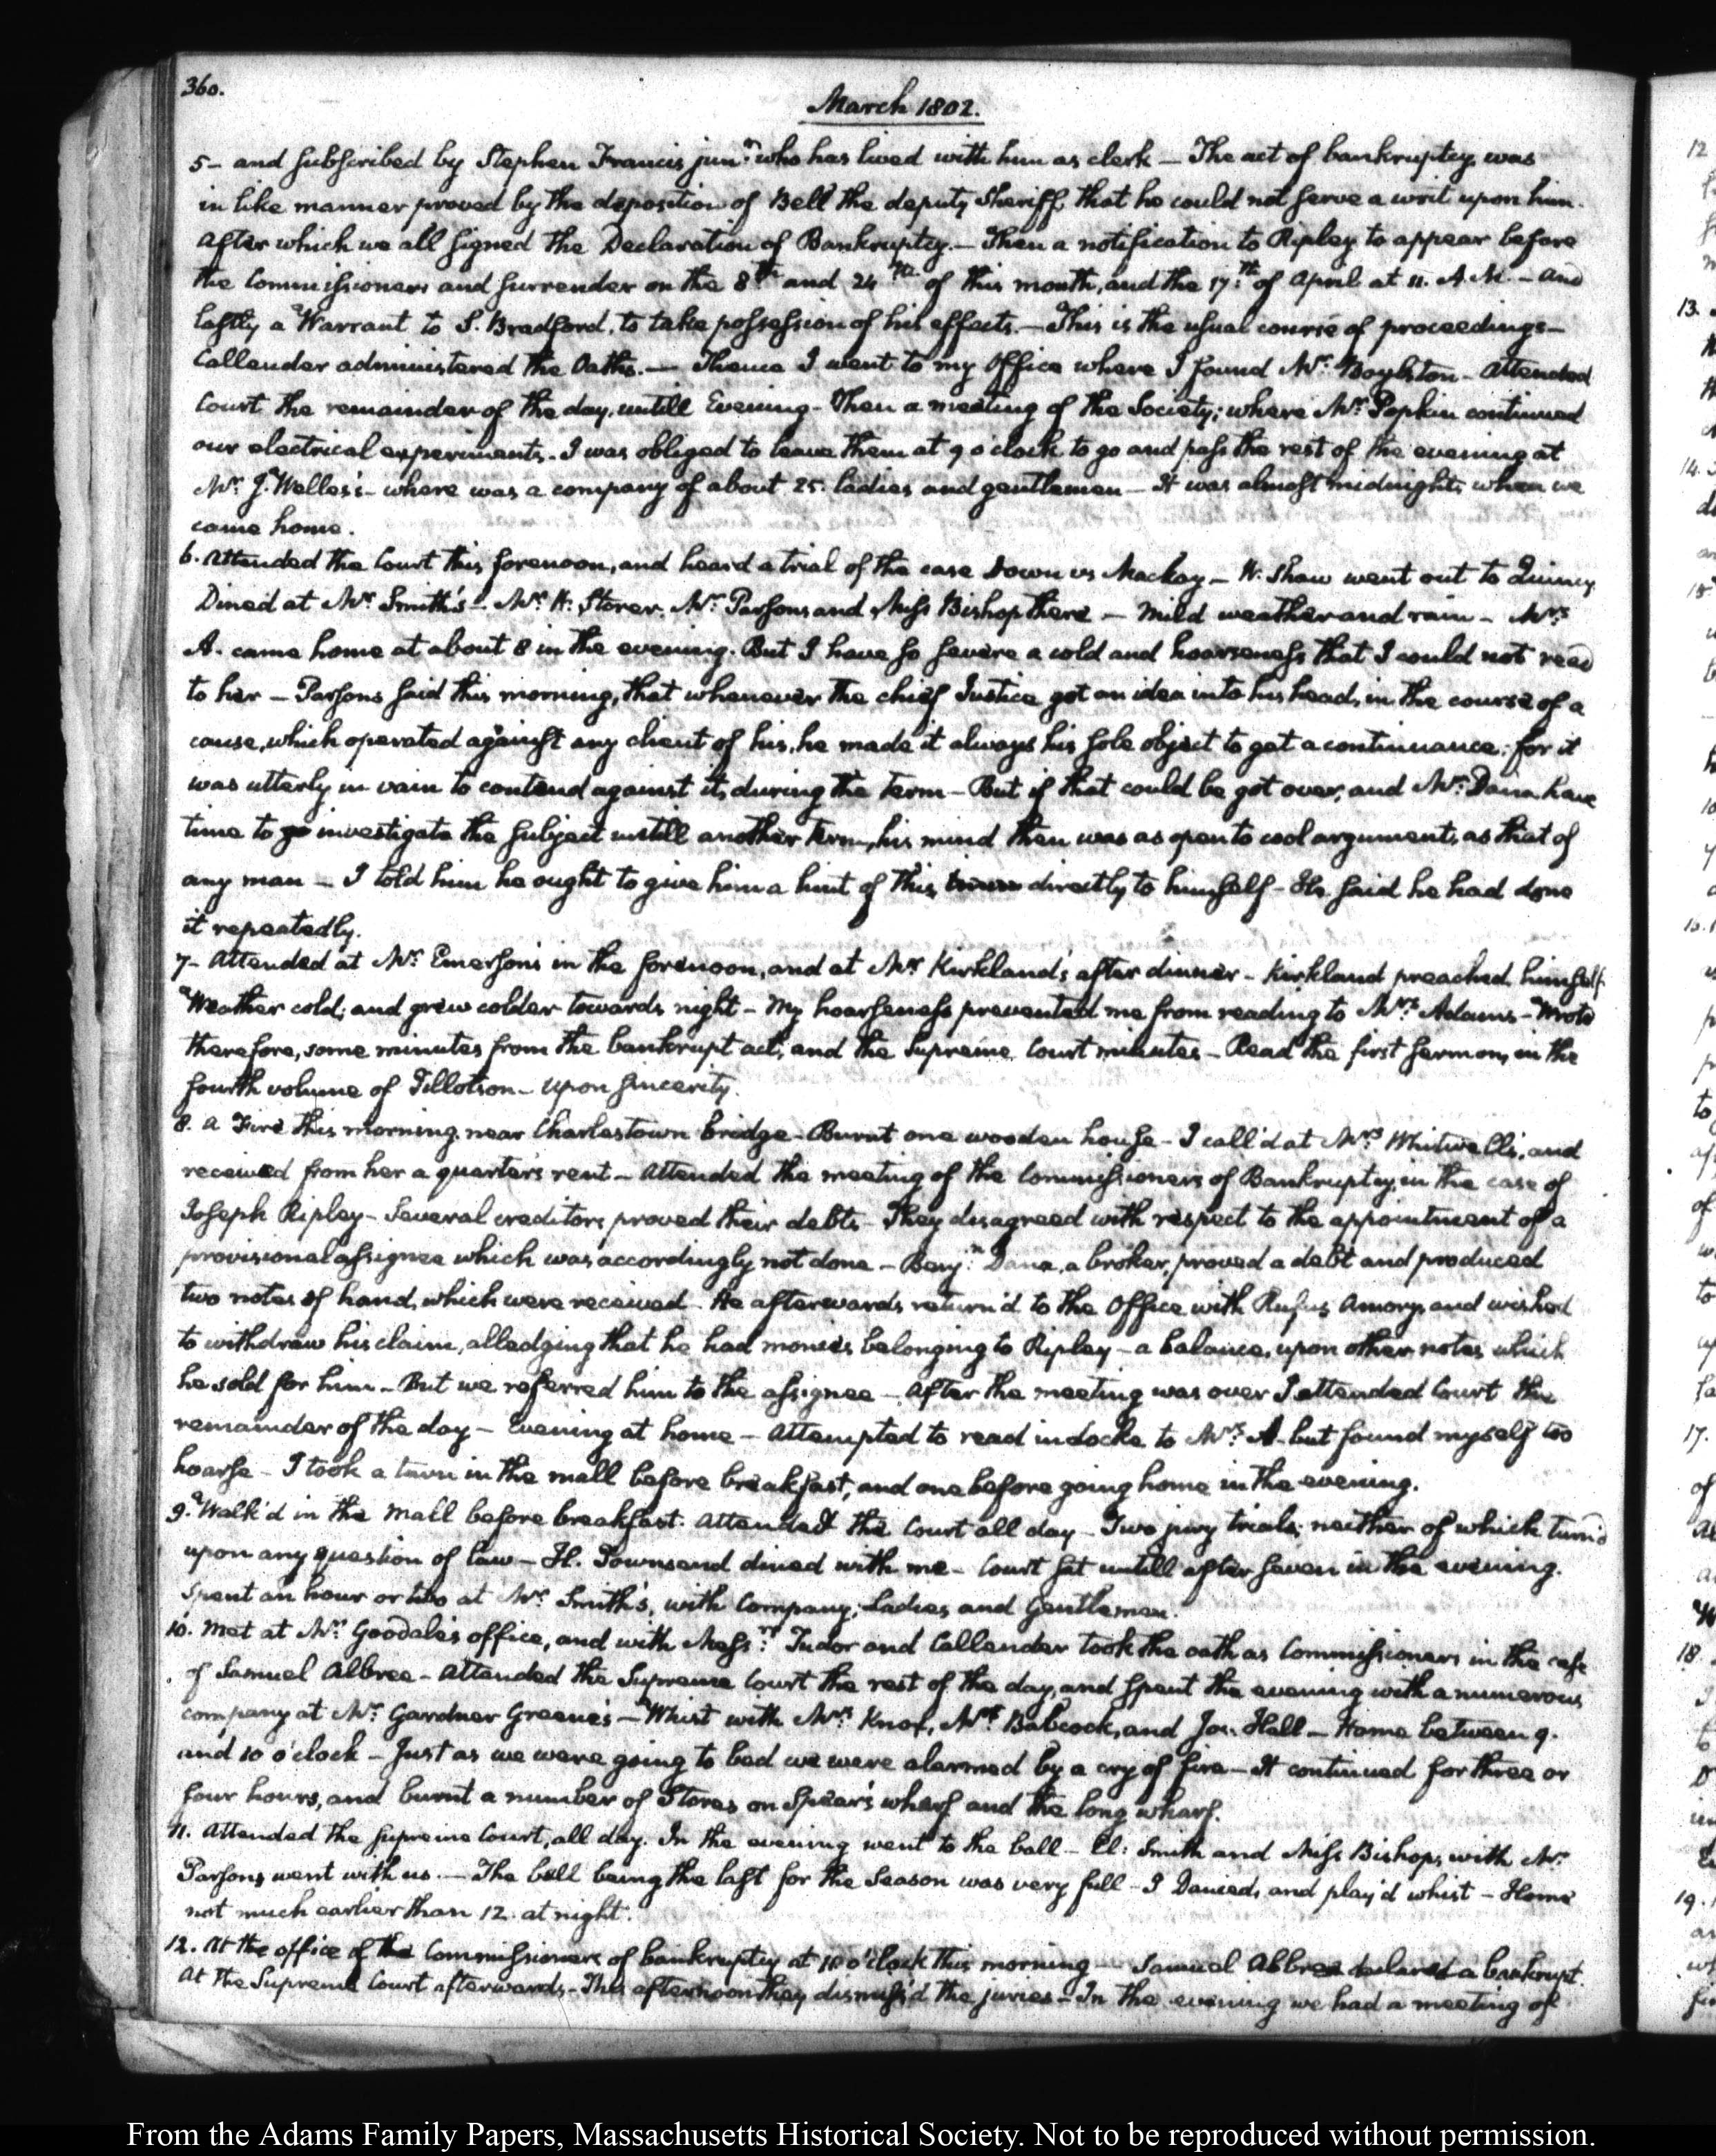 360.
March 1802.
5- and subscribed by Stephen Francis junr. who has lived with him as clerk — The act of bankruptcy was
in like manner proved by the deposition of Bell the deputy Sheriff, that he could not serve a writ upon him.
After which we all signed the Declaration of Bankruptcy.— Then a notification to Ripley to appear before
the Commissioners and surrender on the 8th and 24th of this month, and the 17th of April at 11. A.M. — and
lastly a Warrant to S. Bradford, to take possession of his effects.— This is the usual course of proceedings—
Callender administered the Oaths.— Thence I went to my Office where I found Mr. Boylston — Attended
Court the remainder of the day, untill Evening — Then a meeting of the Society; where Mr. Popkin continued
our electrical experiments. I was obliged to leave them at 9 o'clock to go and pass the rest of the evening at
Mr. J. Welles's — where was a company of about 25. ladies and gentlemen — It was almost midnight, when we
came home.
6. Attended the Court this forenoon, and heard a trial of the case Down vs Mackay — W. Shaw went out to Quincy
Dined at Mr. Smith's — Mr. W. Storer, Mr. Parsons and Miss Bishop there — Mild weather and rain — Mrs
A. came home at about 8 in the evening. But I have so severe a cold and hoarseness that I could not read
to her — Parsons said this morning, that whenever the chief Justice got an idea into his head, in the course of a
cause, which operated against any client of his, he made it always his sole object to get a continuance; for it
was utterly in vain to contend against it, during the term — But if that could be got over, and Mr. Dana have
time to go investigate the subject untill another term, his mind then was as open to cool argument, as that of
any man — I told him he ought to give him a hint of this directly to himself — He said he had done
it repeatedly.
7- Attended at Mr. Emerson's in the forenoon, and at Mr Kirkland's after dinner — Kirkland preached himself.
Weather cold; and grew colder towards night — My hoarseness prevented me from reading to Mrs. Adams — Wrote
therefore, some minutes from the bankrupt act, and the Supreme Court minutes — Read the first sermon, in the
fourth volume of Tillotson — upon sincerity.
8. A Fire this morning, near Charlestown bridge — Burnt one wooden house — I call'd at Mrs Whitwell's, and
received from her a quarter's rent — Attended the meeting of the Commissioners of Bankruptcy, in the case of
Joseph Ripley — Several creditors proved their debts — They disagreed with respect to the appointment of a
provisional assignee which was accordingly not done — Benjn. Dana, a broker, proved a debt and produced
two notes of hand, which were received. He afterwards return'd to the Office with Rufus Amory, and wished
to withdraw his claim, alledging that he had monies belonging to Ripley — a balance, upon other notes which
he sold for him — But we referred him to the assignee — After the meeting was over I attended Court the
remainder of the day — Evening at home — Attempted to read in Locke to Mrs. A. but found myself too
hoarse — I took a turn in the mall before breakfast, and one before going home in the evening.
9. Walk'd in the Mall before breakfast. Attended the Court all day — Two jury trials; neither of which turn'd
upon any question of law — H. Townsend dined with me — Court sat untill after seven in the evening.
Spent an hour or two at Mr. Smith's, with Company; Ladies and Gentlemen.
10. Met at Mr. Goodale's office, and with Messrs. Tudor and Callender took the oath as Commissioners in the case
of Samuel Albree — Attended the Supreme Court the rest of the day, and spent the evening with a numerous
company at Mr. Gardner Greene's — Whist with Mrs. Knox, Mrs. Babcock, and Jos. Hall — Home between 9.
and 10 o'clock — Just as we were going to bed we were alarmed by a cry of fire — It continued for three or
four hours, and burnt a number of Stores on Spear's wharf and the long wharf.
11. Attended the Supreme Court, all day. In the evening went to the ball — El: Smith and Miss Bishop, with Mr.
Parsons went with us — The ball being the last for the Season was very full — I Danced, and play'd whist — Home
not much earlier than 12. at night.
12. At the office of the Commissioners of bankruptcy at 10 o'clock this morning — Samuel Albree declared a bankrupt.
At the Supreme Court afterwards — This afternoon they dismiss'd the juries — In the evening we had a meeting of
From the Adams Family Papers, Massachusetts Historical Society. Not to be reproduced without permission.